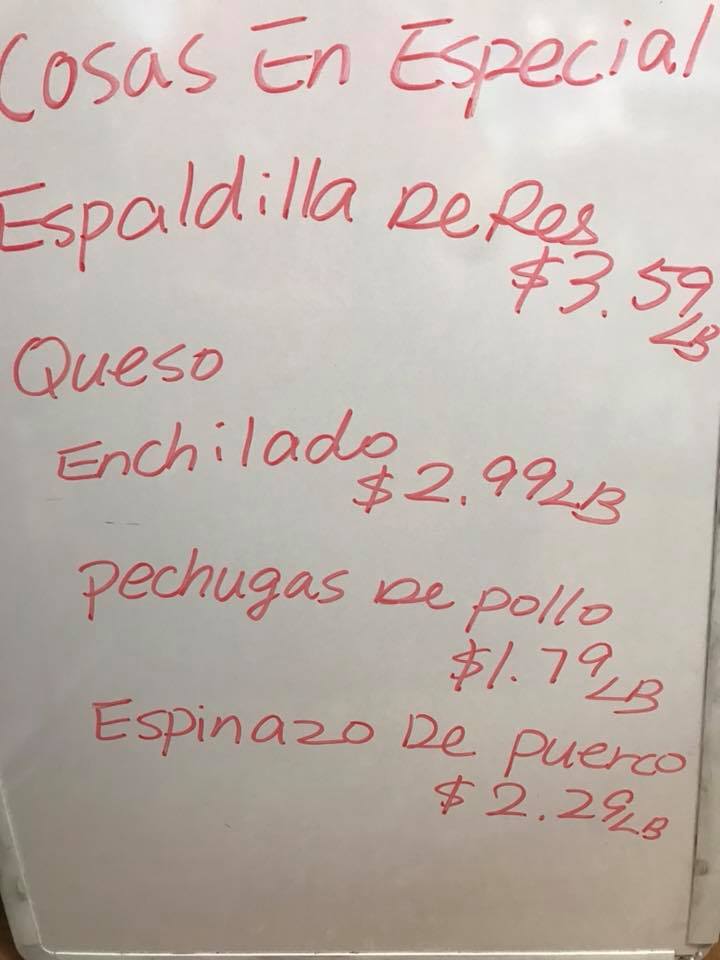 Cosas En Especial
Espaldilla De Res
$3.59
LB
Queso
Enchilado
$2.99 LB
Pechugas De Pollo
$1.79 LB
Espinazo De Puerco
$2.29 LB